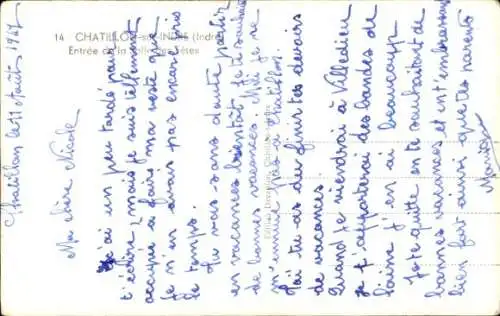 14 CHATILLON-sur-INDRE (Indre)
Entrée de la Salle des Fêtes
Chatillon le 11 Août 1967
Ma chère Nicole
J'ai un peu tardé pour
t'écrire, mais je suis tellement
occupée à faire ma veste que
je n'en avais pas encore
le temps.
Tu vas sans doute partir
en vacances bientôt, je te souhaite
de bonnes vacances. Moi je ne
m'ennuie pas à Chatillon.
J'ai tu as du finir tes devoirs
de vacances.
Quand je viendrai à Villedieu
je t'apporterai des bandes de
laine j'en ai beaucoup
Je te quitte en te souhaitant de
bonnes vacances et en t'embrassant
bien fort ainsi que tes parents